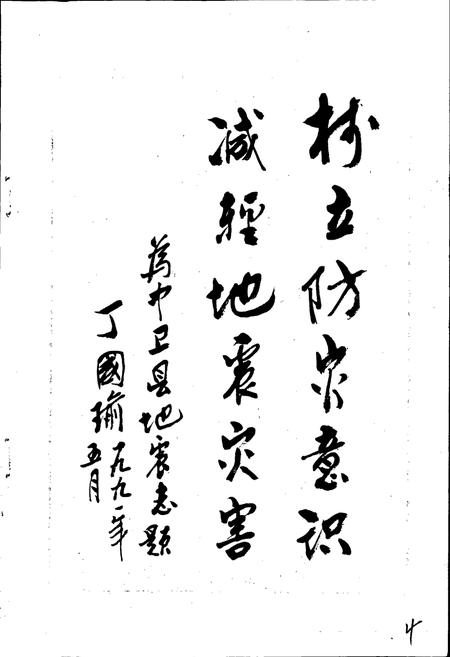 树立防灾意识
减轻地震灾害
為中卫县地震志题
丁國瑜 一九九一年
五月
4